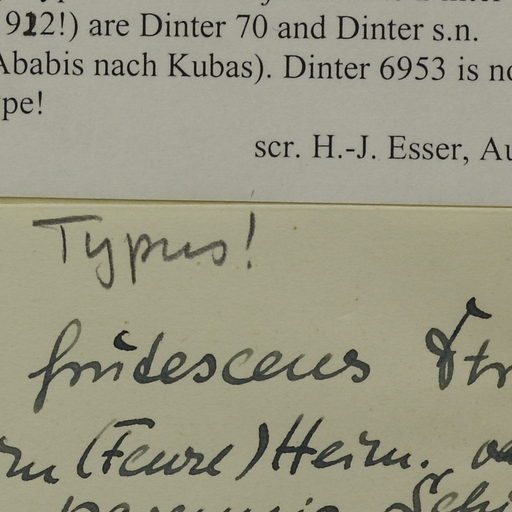 912!) are Dinter 70 and Dinter s.n.
Ababis nach Kubas). Dinter 6953 is no
pe!
scr. H.-J. Esser, Au
Typus!
frutescens
(Fenzl) Heim.